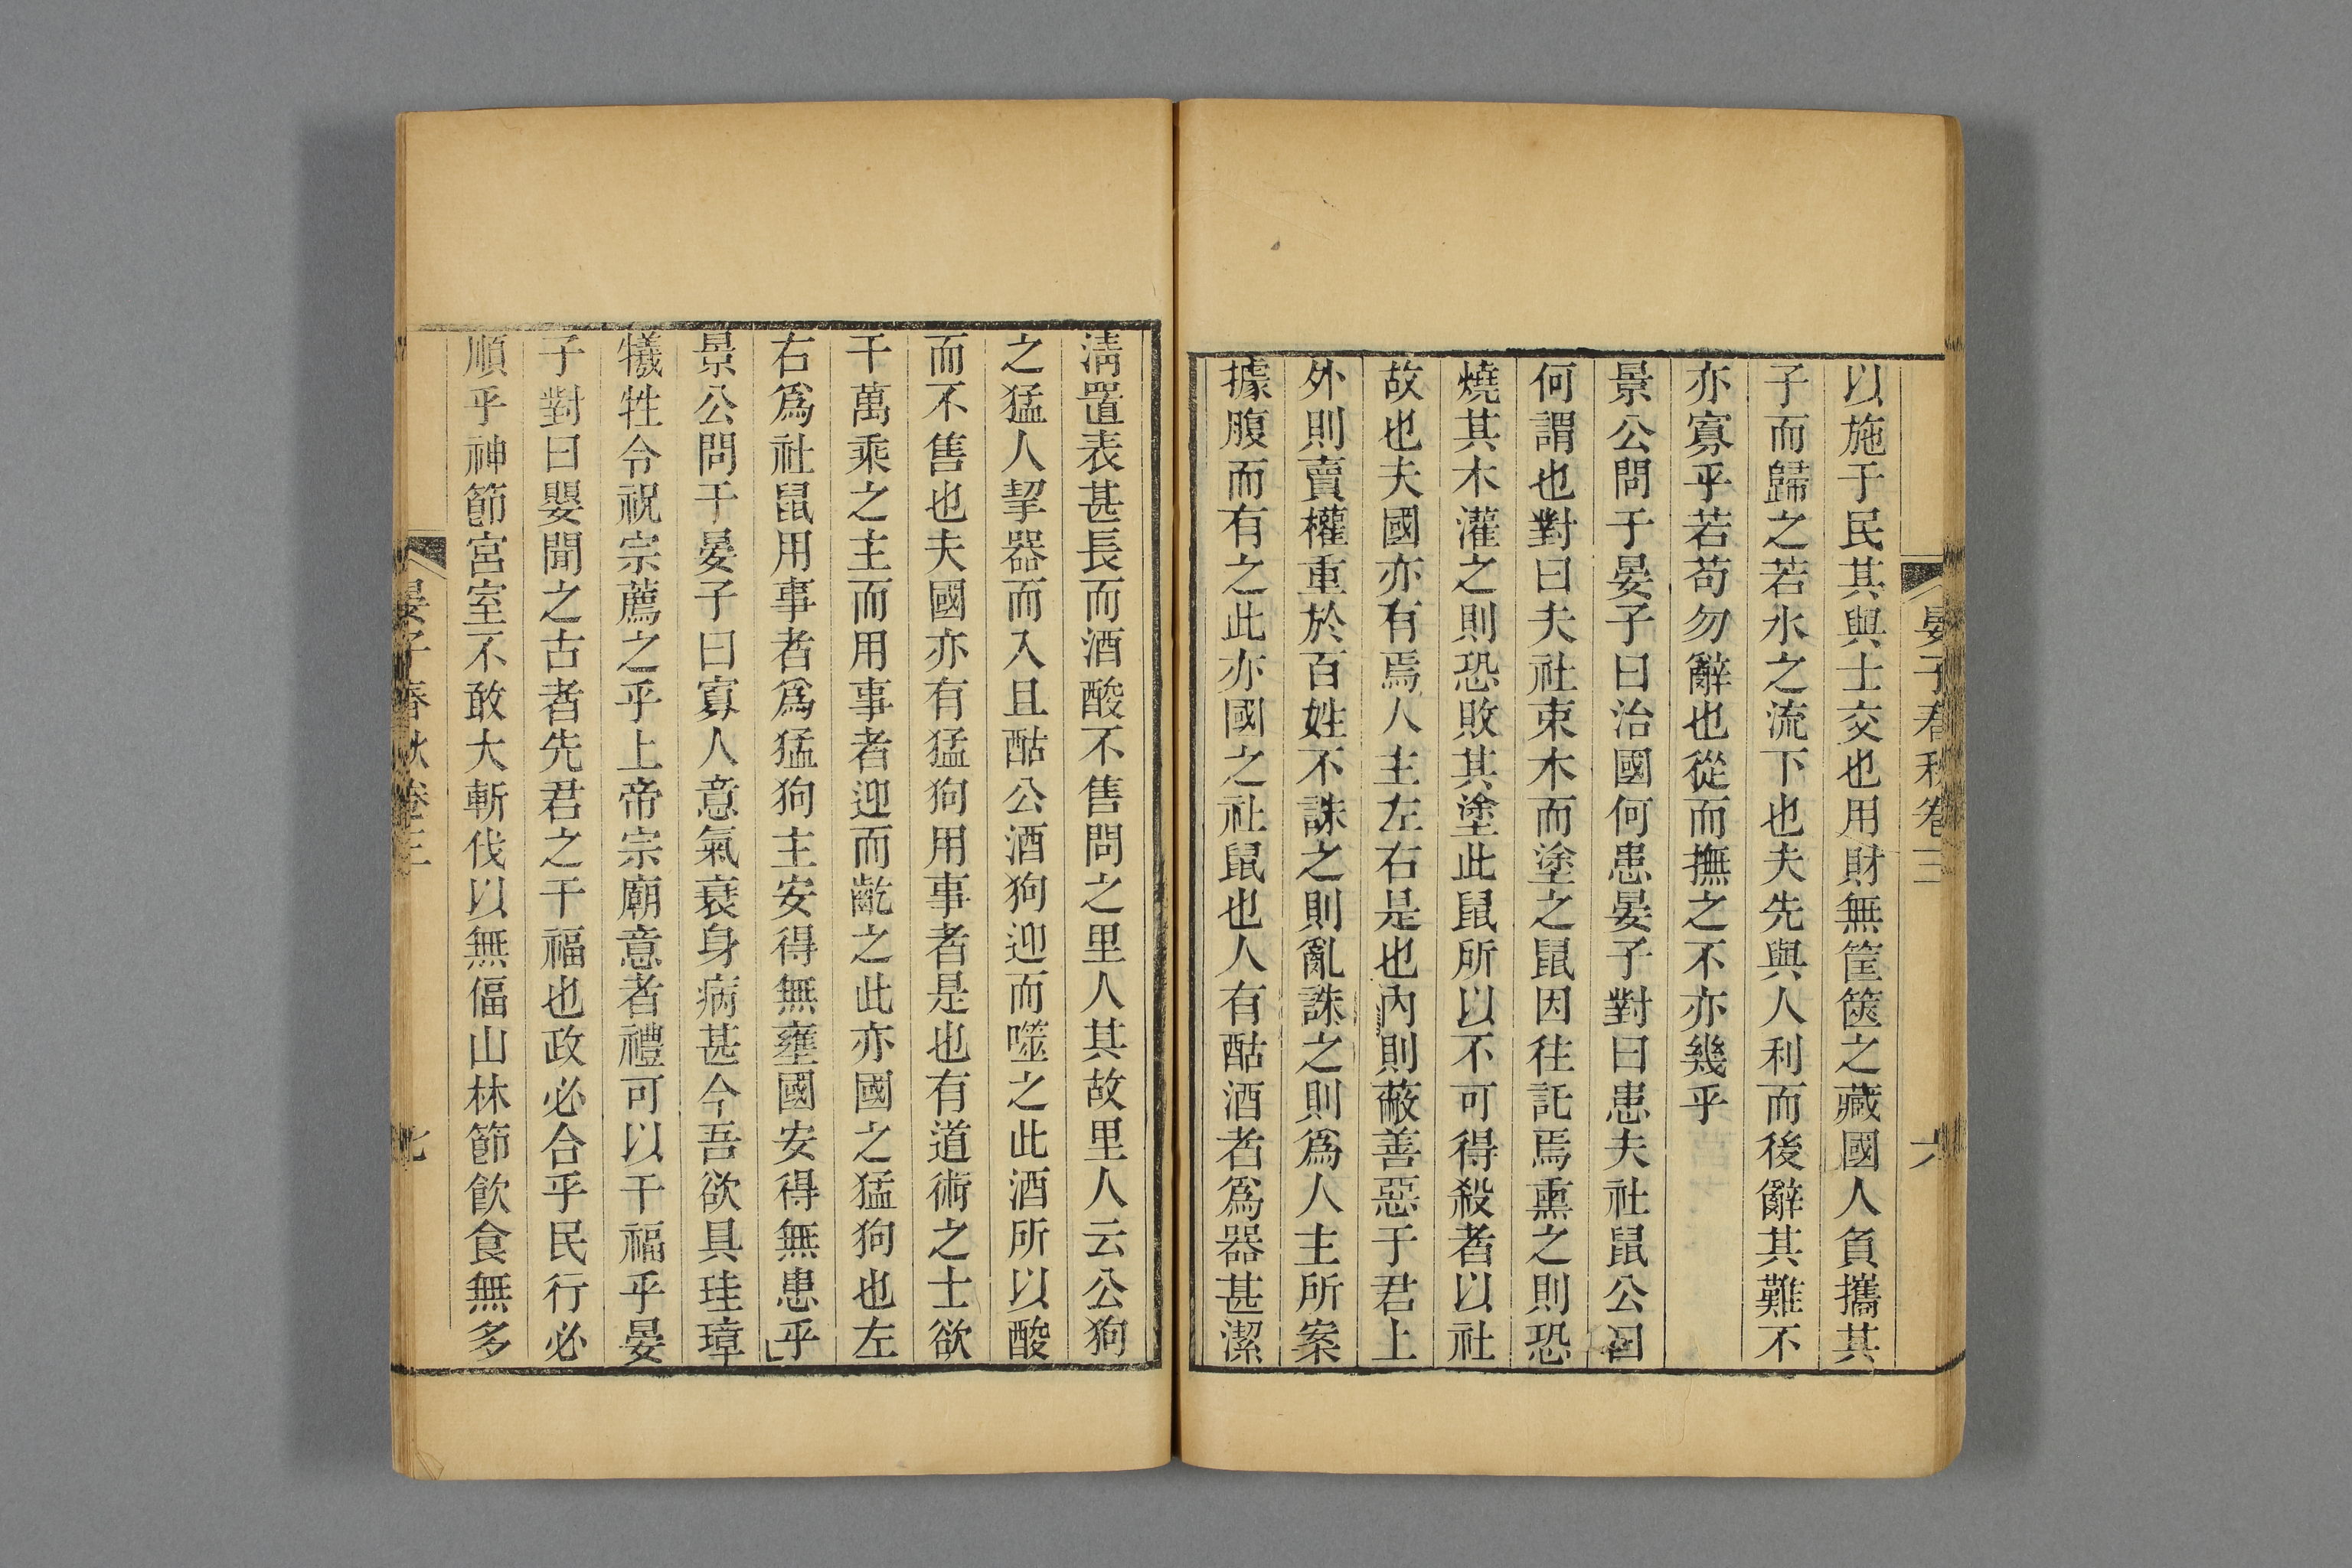 晏子春秋卷三 六
以施于民其與士交也用財無筐篋之藏國人負攜其
子而歸之若水之流下也夫先與人利而後辭其難不
亦寡乎若苟勿辭也從而撫之不亦幾乎
景公問于晏子曰治國何患晏子對曰患夫社鼠公曰
何謂也對曰夫社束木而塗之鼠因往託焉熏之則恐
燒其木灌之則恐敗其塗此鼠所以不可得殺者以社
故也夫國亦有焉人主左右是也內則蔽善惡于君上
外則賣權重於百姓不誅之則亂誅之則為人主所案
據腹而有之此亦國之社鼠也人有酤酒者為器甚潔
清置表甚長而酒酸不售問之里人其故里人云公狗
之猛人挈器而入且酤公酒狗迎而噬之此酒所以酸
而不售也夫國亦有猛狗用事者是也有道術之士欲
干萬乘之主而用事者迎而齕之此亦國之猛狗也左
右為社鼠用事者為猛狗主安得無壅國安得無患乎
景公問于晏子曰寡人意氣衰身病甚今吾欲具珪璋
犧牲令祝宗薦之乎上帝宗廟意者禮可以干福乎晏
子對曰嬰聞之古者先君之干福也政必合乎民行必
順乎神節宮室不敢大斬伐以無偪山林節飲食無多
晏子春秋卷三 七